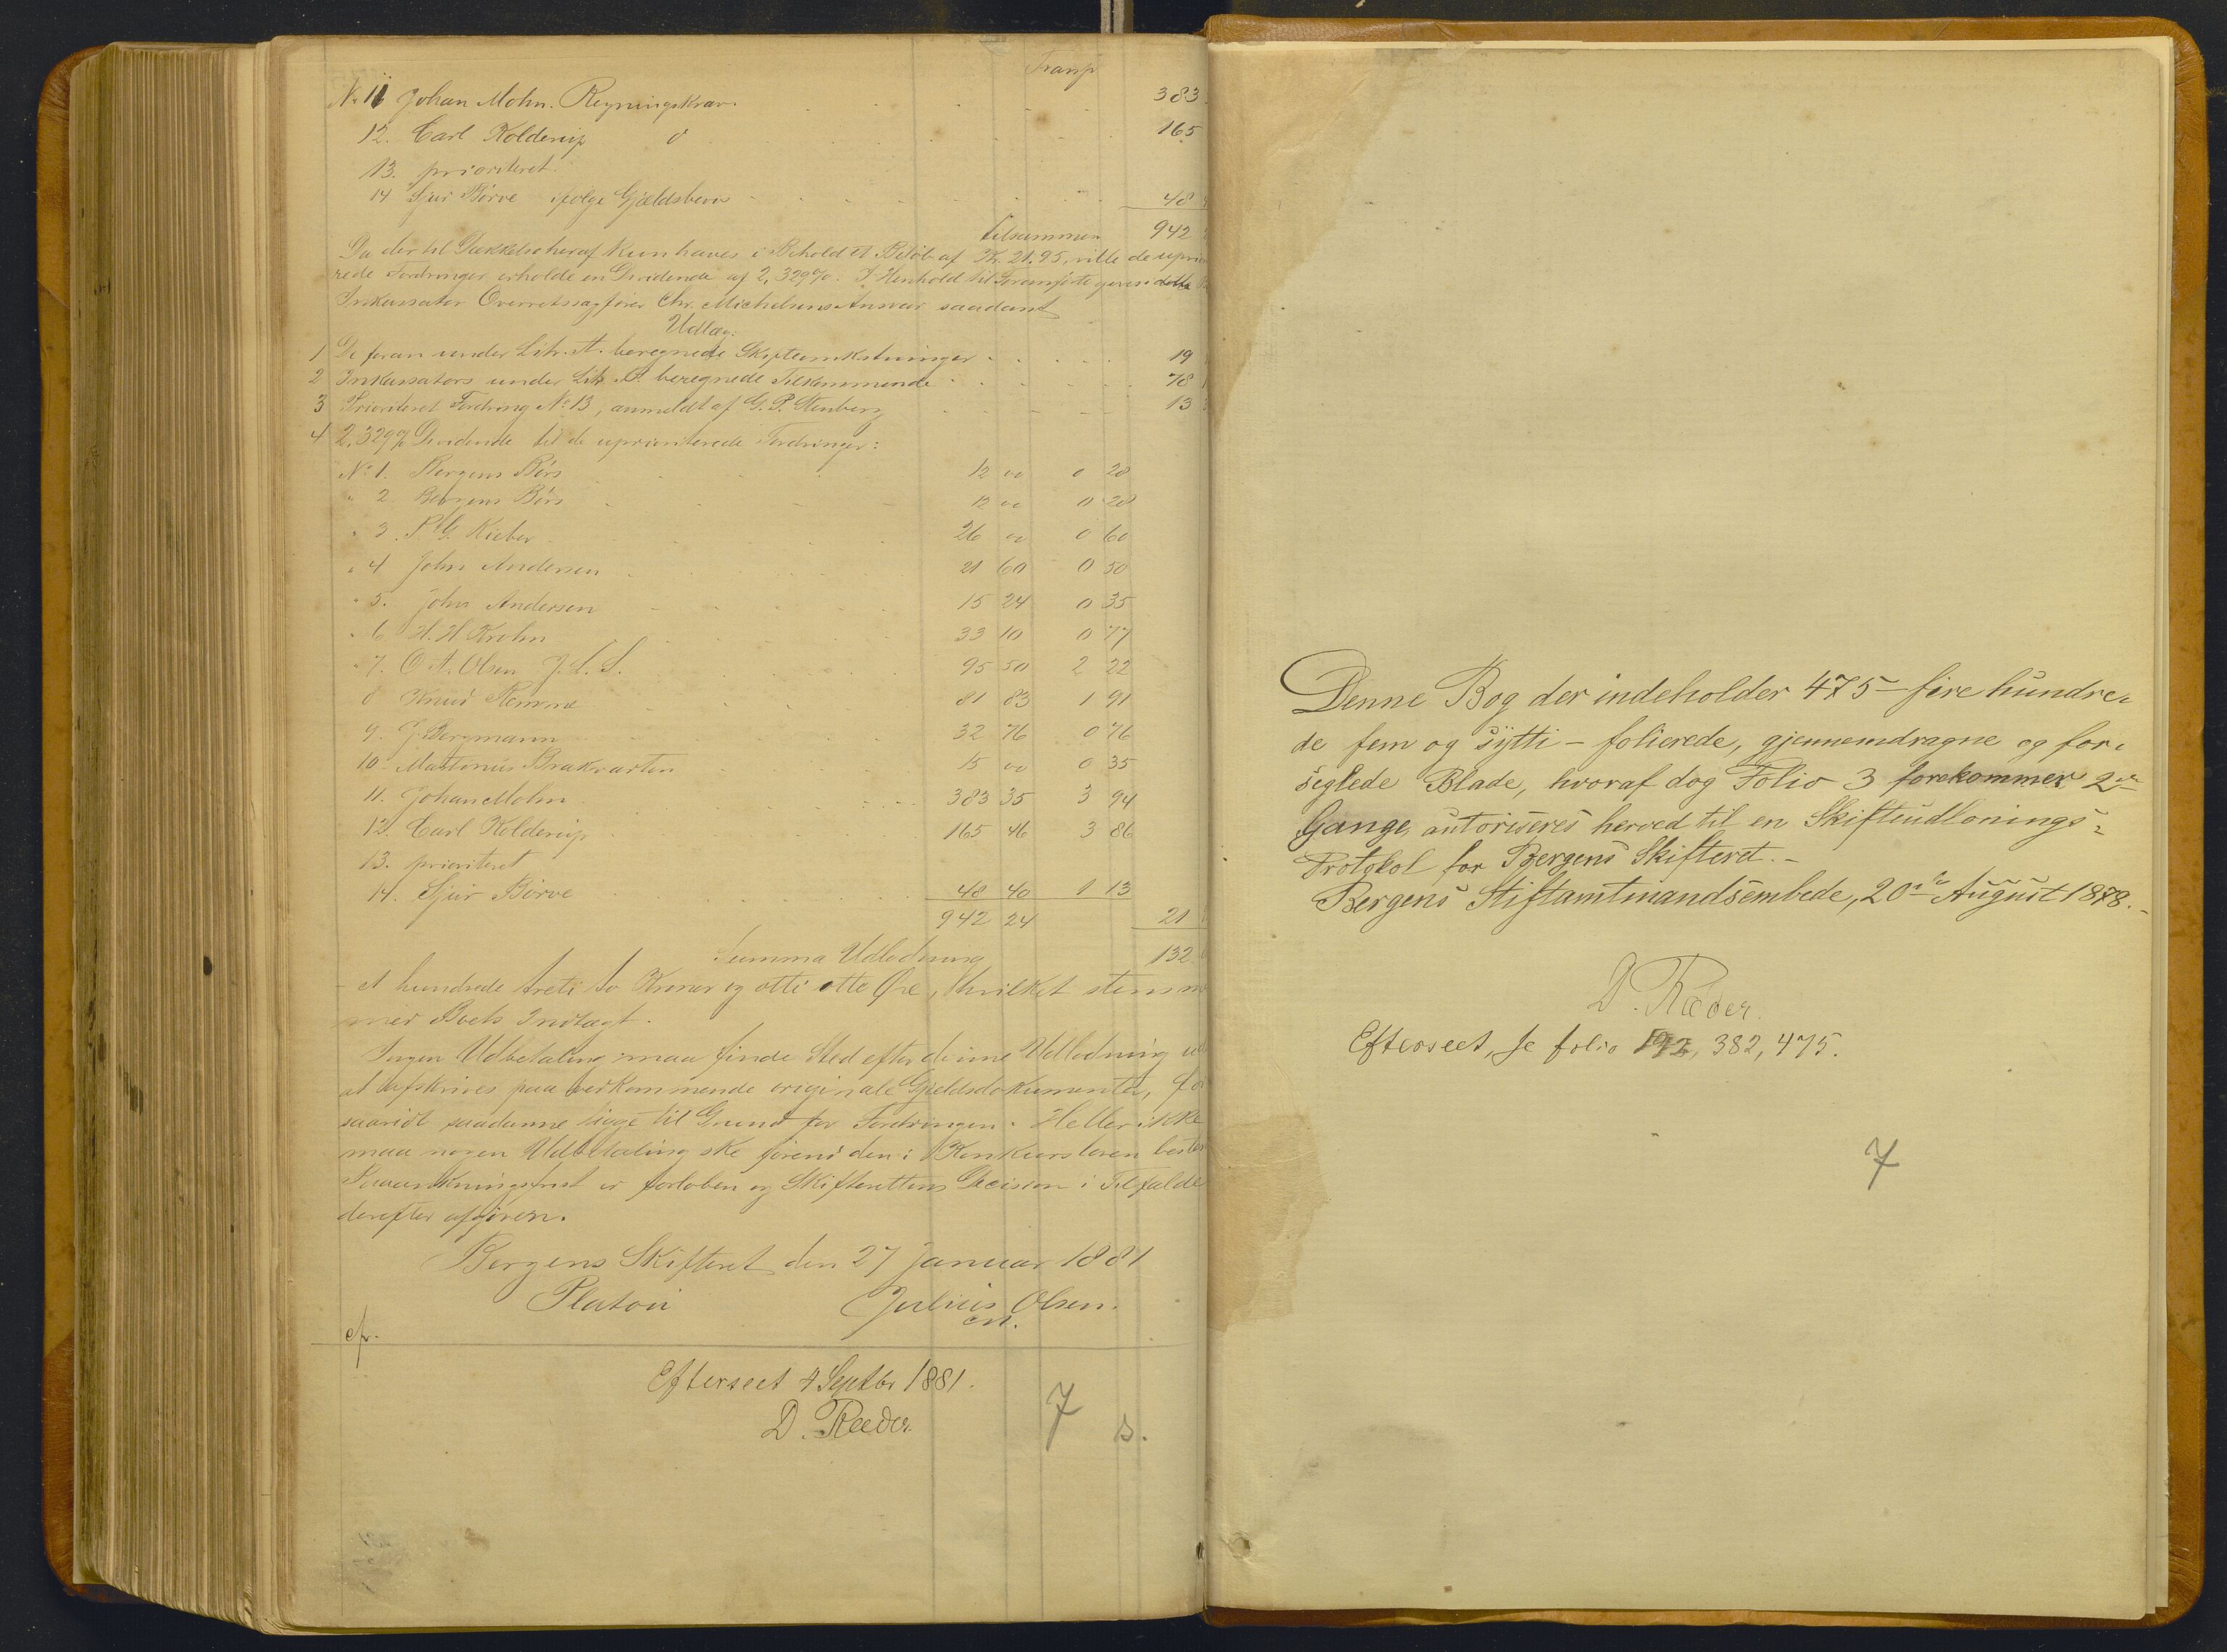 Transp
No 11 Johan Mohn. Regningskrav. 383
12. Carl Kolderup do 165
13. prioriteret.
14 Sjur Børve ifølge Gjældsbevis 48
tilsammen 942
Da der til Dækkelse heraf kun haves i Behold et Beløb af Kr. 21.95, ville de uprio
rede Fordringer erholde en Dividende af 2,329%. I Henhold til Foranførte gjøres i dette
Inkassator Overretssagfører Chr. Michelsens Ansvar saadant
Udlæg:
1 De foran under Litr. A. beregnede Skifteomkostninger 19
2 Inkassators under Litr. B. beregnede Tilkommende 78
3 Prioriteret Fordring No 13, anmeldt af G. P. Stenberg 13
4 2,329% Dividende til de uprioriterede Fordringer:
No 1. Bergens Børs 12 00 0 28
" 2. Bergens Børs 12 00 0 28
" 3. P. G. Rieber 26 00 0 60
" 4 John Andersen 21 60 0 50
" 5. John Andersen 15 24 0 35
" 6 H. H. Krohn 33 10 0 77
" 7. O. A. Olsen 95 50 2 22
8 Knud 81 83 1 91
9. J. Bergmann 32 76 0 76
10. Martinus Brakvarten 15 00 0 35
11. Johan Mohn 383 35 3 94
12. Carl Kolderup 165 46 3 86
13. prioriteret
14. Sjur Børve 48 40 1 13
942 24 21
Summa Udlodning 132
- et hundrede treti to Kroner og otti otte Øre, hvilket stemm
med Boets Indtægt.
Ingen Udbetaling maa finde Sted efter denne Udlodning ud
at afskrives paa vedkommende originale Gjeldsdokumenter, for
saavidt saadanne ligge til Grund for Fordringen. Heller ikke
maa nogen Udbetaling ske førend den i Konkursloven beste
Paaankningsfrist er forløben og Skifterettens Decision i Tilfælde
derefter afgiven.
Bergens Skifteret den 27 Januar 1881
Platou Julius Olsen.
cst.
cf.
Efterseet 4 Septbr 1881.
D. Ræder
7 s.
Denne Bog der indeholder 475 - fire hundre-
de fem og sytti - folierede, gjennemdragne og for-
seglede Blade, hvoraf dog Folio 3 forekommer 2de
Gange, autoriseres herved til en Skifteudlodnings-
Protokol for Bergens Skifteret. -
Bergens Stiftamtmandsembede, 20de August 1878. -
D. Ræder.
Efterseet, se folio 192, 382, 475.
7